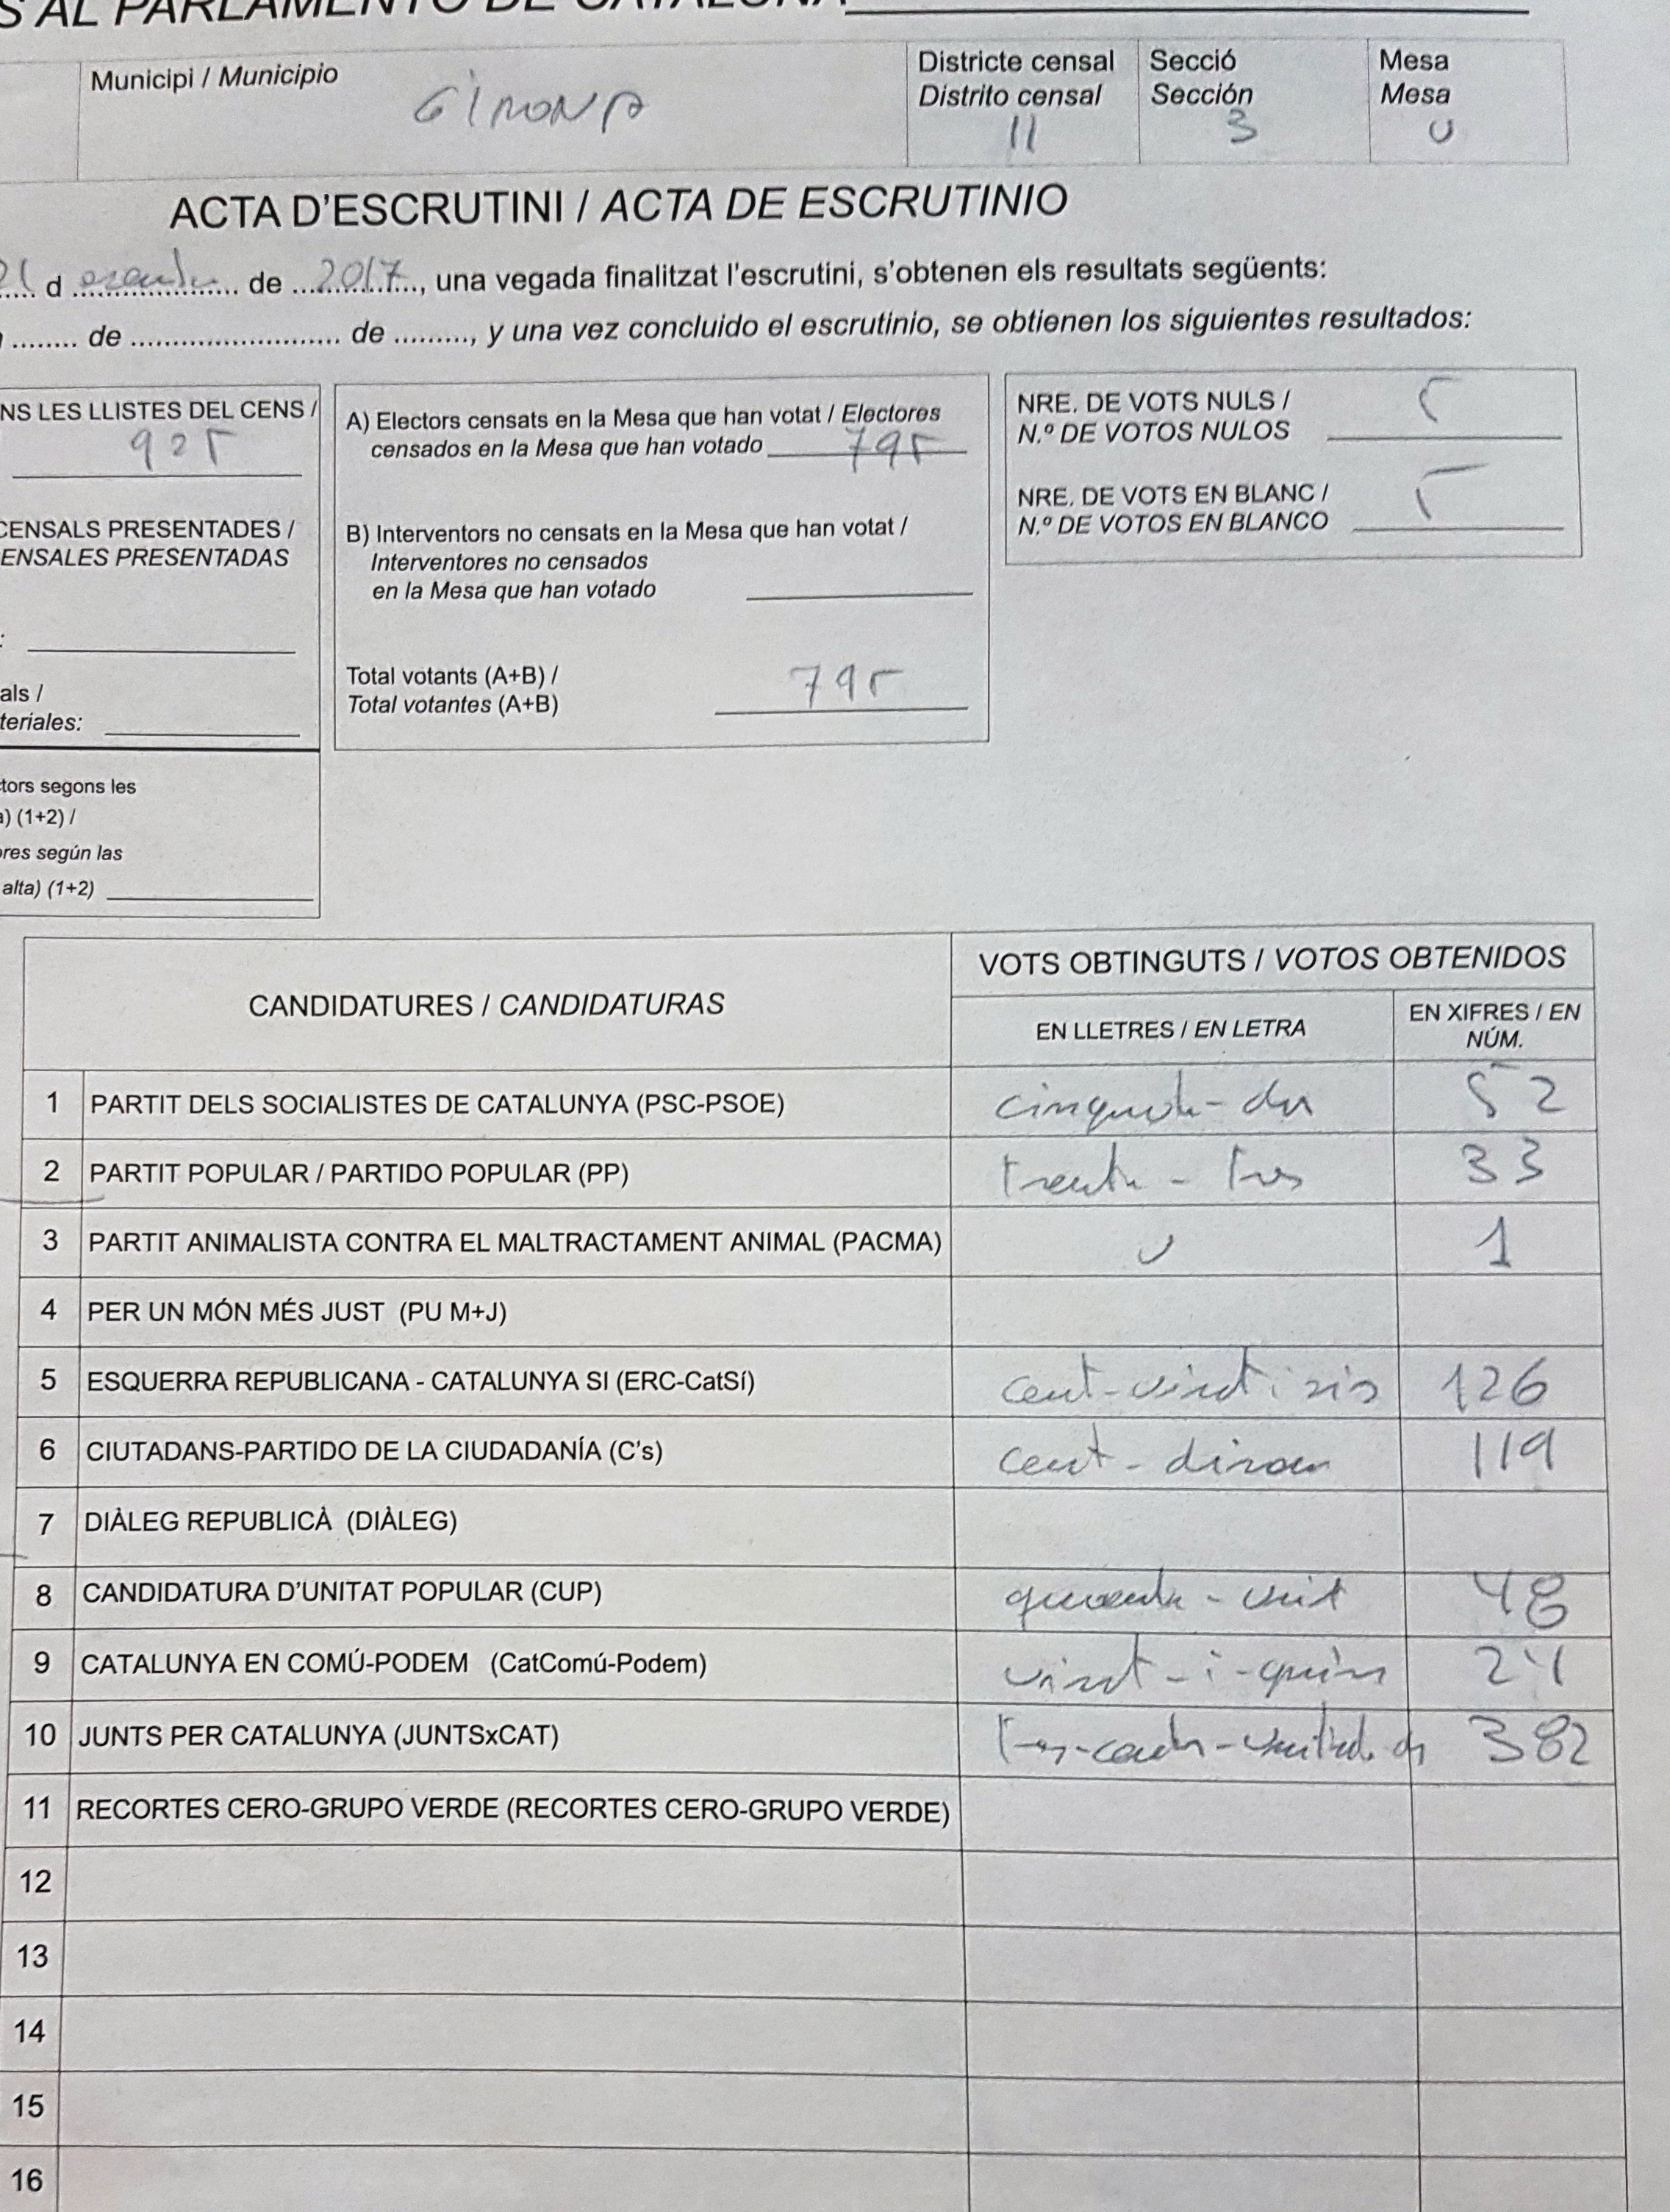 S AL PARLAMENTO DE CATALUÑA
Municipi / Municipio GIRONA
Districte censal
Distrito censal
11
Secció
Sección
3
Mesa
Mesa
U
ACTA D'ESCRUTINI / ACTA DE ESCRUTINIO
21 d desembre de 2017, una vegada finalitzat l'escrutini, s'obtenen els resultats següents:
de de , y una vez concluido el escrutinio, se obtienen los siguientes resultados:
NS LES LLISTES DEL CENS /
925
CENSALS PRESENTADES /
ENSALES PRESENTADAS
:
als /
teriales:
tors segons les
a) (1+2) /
ores según las
alta) (1+2)
A) Electors censats en la Mesa que han votat / Electores
censados en la Mesa que han votado 795
B) Interventors no censats en la Mesa que han votat /
Interventores no censados
en la Mesa que han votado
Total votants (A+B) /
Total votantes (A+B) 795
NRE. DE VOTS NULS /
N.º DE VOTOS NULOS 5
NRE. DE VOTS EN BLANC /
N.º DE VOTOS EN BLANCO 5
CANDIDATURES / CANDIDATURAS
VOTS OBTINGUTS / VOTOS OBTENIDOS
EN LLETRES / EN LETRA
EN XIFRES / EN
NÚM.
1 PARTIT DELS SOCIALISTES DE CATALUNYA (PSC-PSOE) cinquanta-dos 52
2 PARTIT POPULAR / PARTIDO POPULAR (PP) trenta-tres 33
3 PARTIT ANIMALISTA CONTRA EL MALTRACTAMENT ANIMAL (PACMA) 1
4 PER UN MÓN MÉS JUST (PU M+J)
5 ESQUERRA REPUBLICANA - CATALUNYA SI (ERC-CatSí) cent-vint i sis 126
6 CIUTADANS-PARTIDO DE LA CIUDADANÍA (C's) cent-dinou 119
7 DIÀLEG REPUBLICÀ (DIÀLEG)
8 CANDIDATURA D'UNITAT POPULAR (CUP) quaranta-vuit 48
9 CATALUNYA EN COMÚ-PODEM (CatComú-Podem) vint-i-quatre 24
10 JUNTS PER CATALUNYA (JUNTSxCAT) tres-cents-vuitanta dos 382
11 RECORTES CERO-GRUPO VERDE (RECORTES CERO-GRUPO VERDE)
12
13
14
15
16